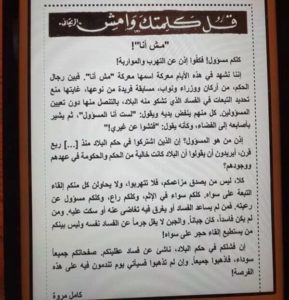 قل كلمتك وامش
"مش أنا"!
كلكم مسؤول! فكفوا إذن عن التهرب والمواربة!
إننا نشهد في هذه الأيام معركة اسمها معركة "مش أنا". فبين رجال
الحكم، من أركان ووزراء ونواب، مسابقة فريدة من نوعها، غايتها منع
تحديد التبعات في الفساد الذي تشكو منه البلاد، بالتنصل منها دون تعيين
المسؤولين. كل منهم ينفض يديه ويقول: "لست أنا المسؤول"، ثم يشير
بأصابعه إلى الفضاء، وكأنه يقول: "فتشوا عن غيري!"
إذن من هو المسؤول؟ إن الذين اشتركوا في حكم البلاد منذ [...] ربع
قرن، أيريدون أن يقولوا أن البلاد كانت خالية من الحكم والحكومة في عهدهم
ووجودهم؟
كلا، ليس من يصدق مزاعمكم، فلا تتهربوا، ولا يحاولن كل منكم إلقاء
التبعة على سواه. كلكم سواء في الإثم، وكلكم راع، وكلكم مسؤول عن
رعيته. فمن لم يصنع الفساد أو يغرق فيه تغاضى عنه أو سكت عليه. ومن
لم يكن فاسداً، كان جباناً. والجبن لا يقل جرماً عن الفساد نفسه وليس بينكم
من يستطيع إلقاء حجر على سواه!
إن فشلكم في حكم البلاد، ناشئ عن فساد عقليتكم. صفحاتكم جميعاً
سوداء، فاذهبوا جميعاً. وإن لم تذهبوا فسيأتي يوم تندمون فيه على هذه
الفرصة!
كامل مروة